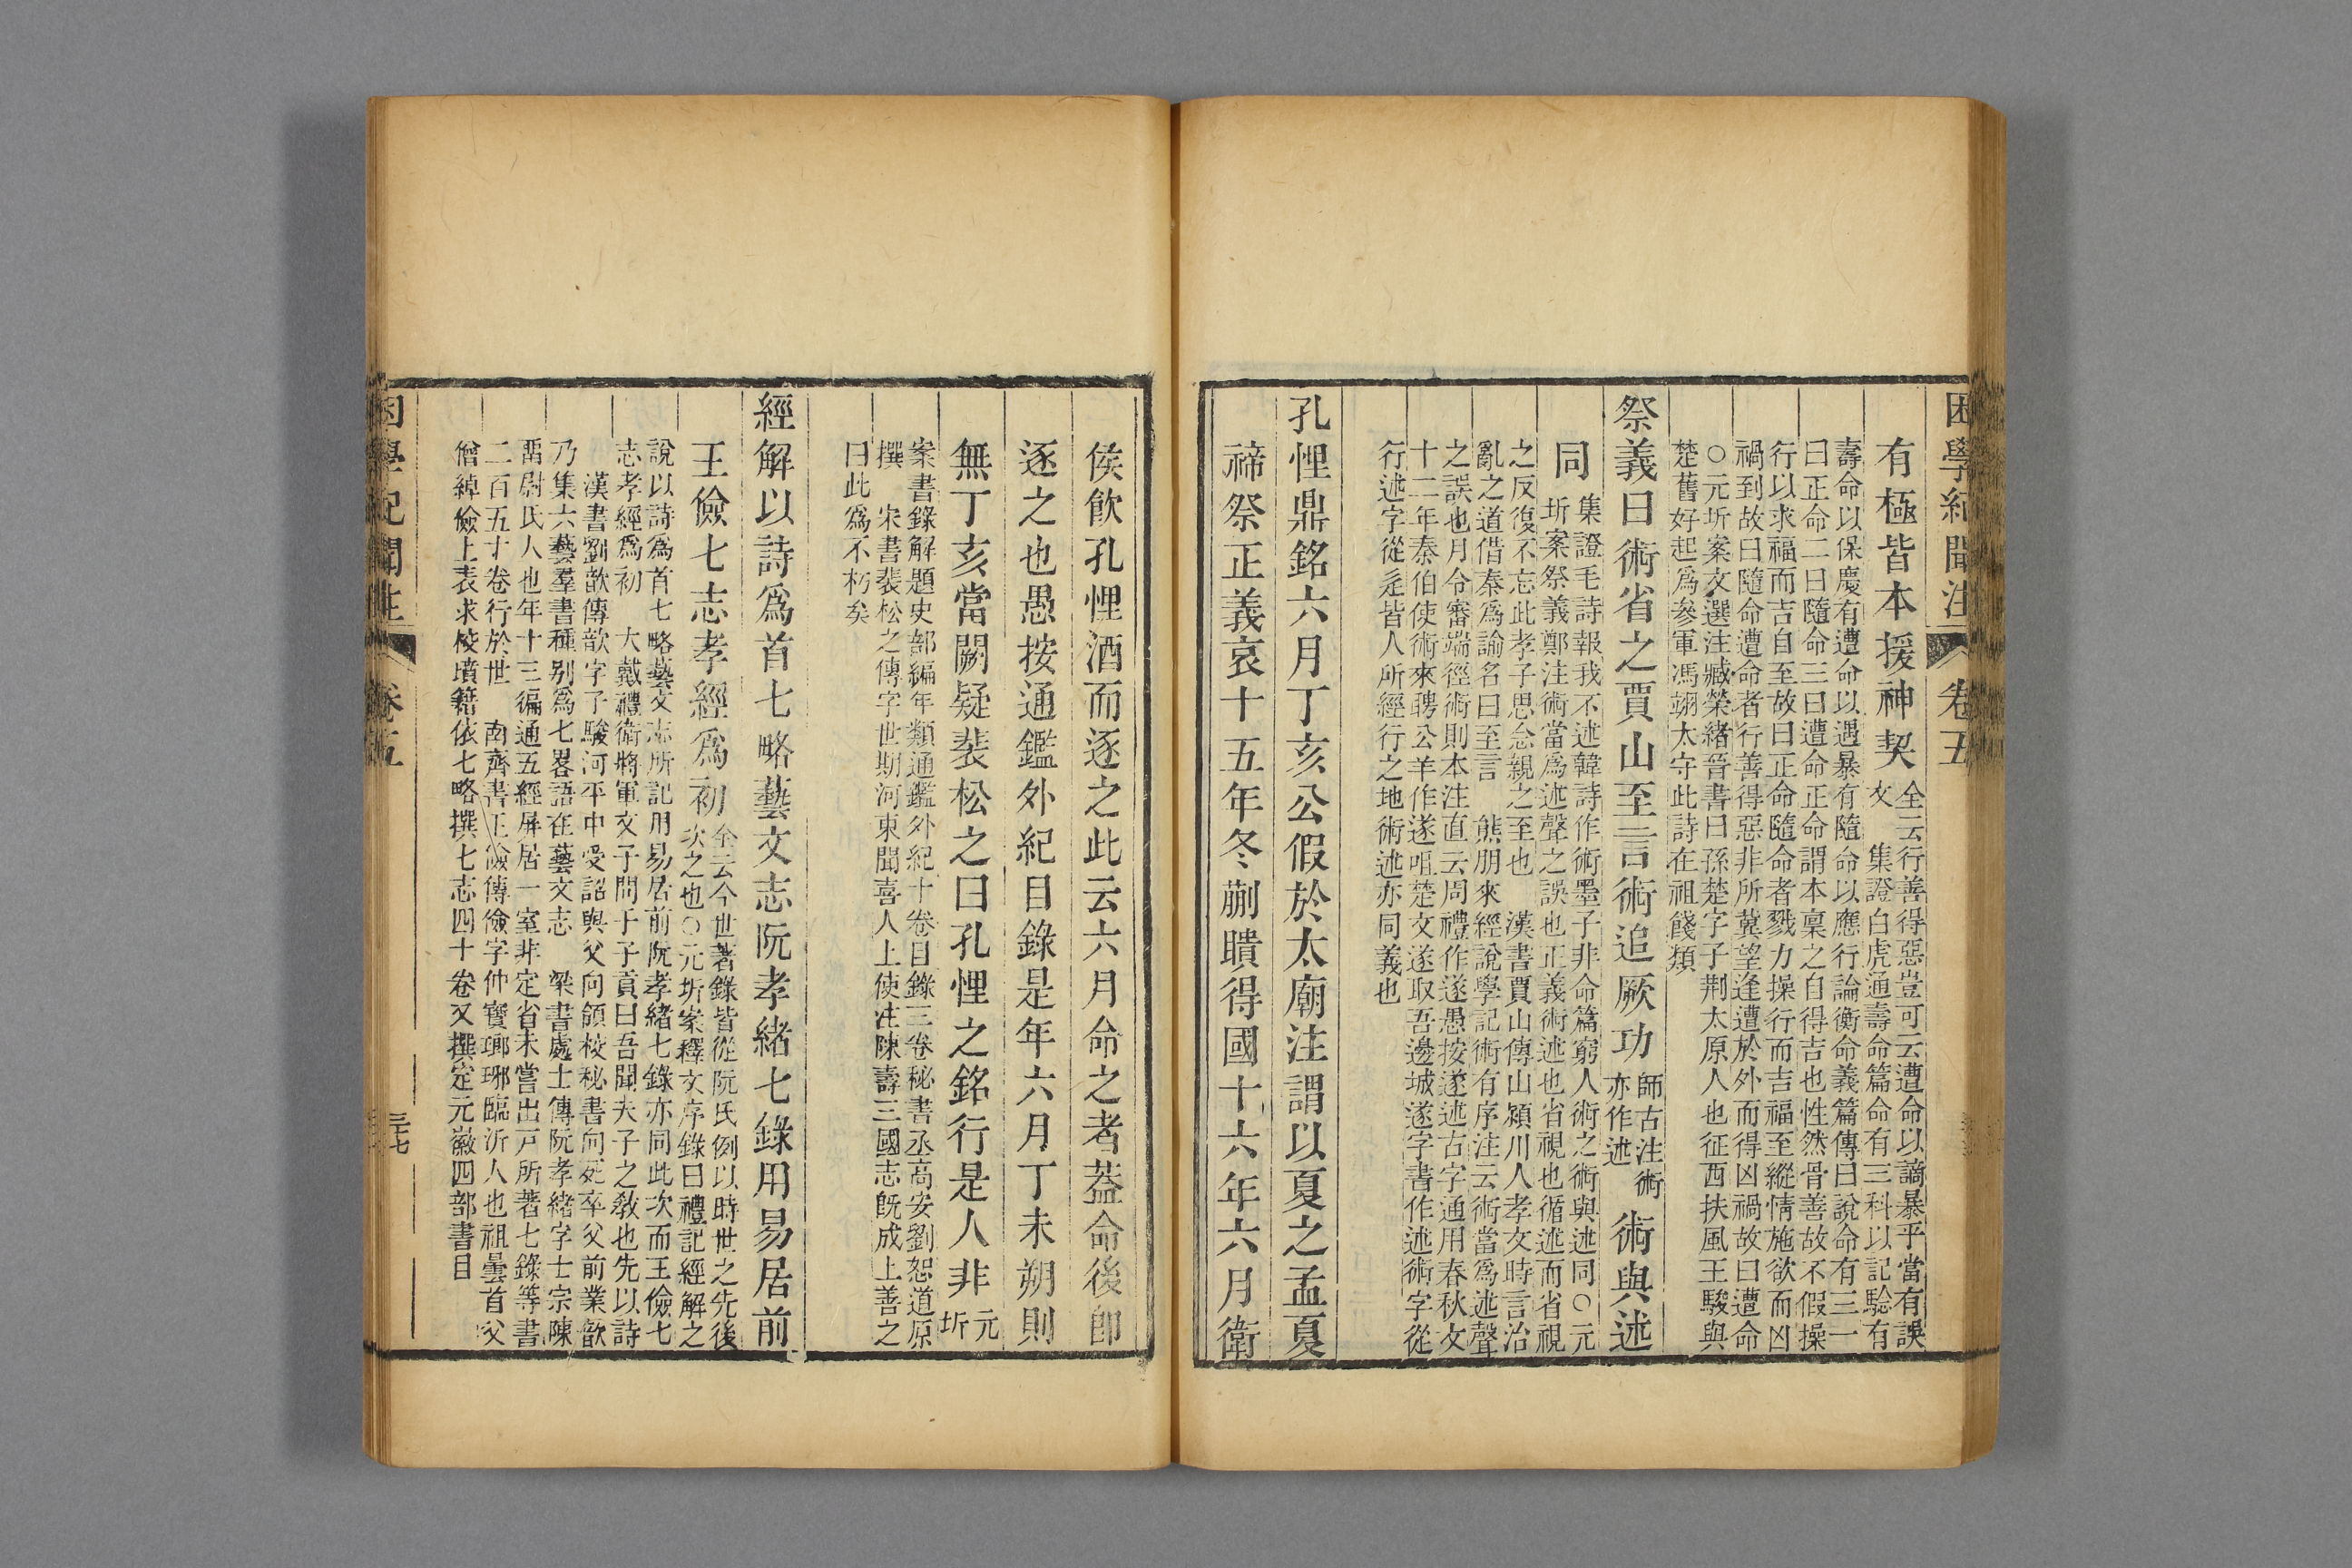 困學紀聞注 卷五
有極皆本援神契
全云行善得惡豈可云遭命以謫暴乎當有誤
文 集證白虎通壽命篇命有三科以記驗有
壽命以保慶有遭命以遇暴有隨命以應行論衡命義篇傳曰說命有三一
曰正命二曰隨命三曰遭命正命謂本稟之自得吉也性然骨善故不假操
行以求福而吉自至故曰正命隨命者戮力操行而吉福至縱情施欲而凶
禍到故曰隨命遭命者行善得惡非所冀望逢遭於外而得凶禍故曰遭命
○元圻案文選注臧榮緒晉書曰孫楚字子荆太原人也征西扶風王駿與
楚舊好起爲參軍馮翊太守此詩在祖餞類
祭義曰術省之賈山至言術追厥功
師古注術
亦作述
術與述
同
集證毛詩報我不述韓詩作術墨子非命篇窮人術之術與述同○元
圻案祭義鄭注術當爲述聲之誤也正義術述也省視也循述而省視
之反復不忘此孝子思念親之至也 漢書賈山傳山潁川人孝文時言治
亂之道借秦爲諭名曰至言 熊朋來經說學記術有序注云術當爲述聲
之誤也月令審端徑術則本注直云周禮作遂愚按遂述古字通用春秋文
十二年秦伯使術來聘公羊作遂咀楚文遂取吾邊城遂字書作述術字從
行述字從辵皆人所經行之地術述亦同義也
孔悝鼎銘六月丁亥公假於太廟注謂以夏之孟夏
禘祭正義哀十五年冬蒯聵得國十六年六月衛
侯飲孔悝酒而逐之此云六月命之者葢命後卽
逐之也愚按通鑑外紀目錄是年六月丁未朔則
無丁亥當闕疑裴松之曰孔悝之銘行是人非
元
圻
案書錄解題史部編年類通鑑外紀十卷目錄三卷秘書丞高安劉恕道原
撰 宋書裴松之傳字世期河東聞喜人上使注陳壽三國志旣成上善之
曰此爲不朽矣
經解以詩爲首七略藝文志阮孝緒七錄用易居前
王儉七志孝經爲初
全云今世著錄皆從阮氏例以時世之先後
次之也○元圻案釋文序錄曰禮記經解之
說以詩爲首七略藝文志所記用易居前阮孝緒七錄亦同此次而王儉七
志孝經爲初 大戴禮衛將軍文子問于子貢曰吾聞夫子之敎也先以詩
漢書劉歆傳歆字子駿河平中受詔與父向領校秘書向死卒父前業歆
乃集六藝羣書種別爲七畧語在藝文志 梁書處士傳阮孝緒字士宗陳
畱尉氏人也年十三徧通五經屏居一室非定省未嘗出戸所著七錄等書
二百五十卷行於世 南齊書王儉傳儉字仲寶瑯琊臨沂人也祖曇首父
僧綽儉上表求校墳籍依七略撰七志四十卷又撰定元徽四部書目
困學紀聞注 卷五 三七